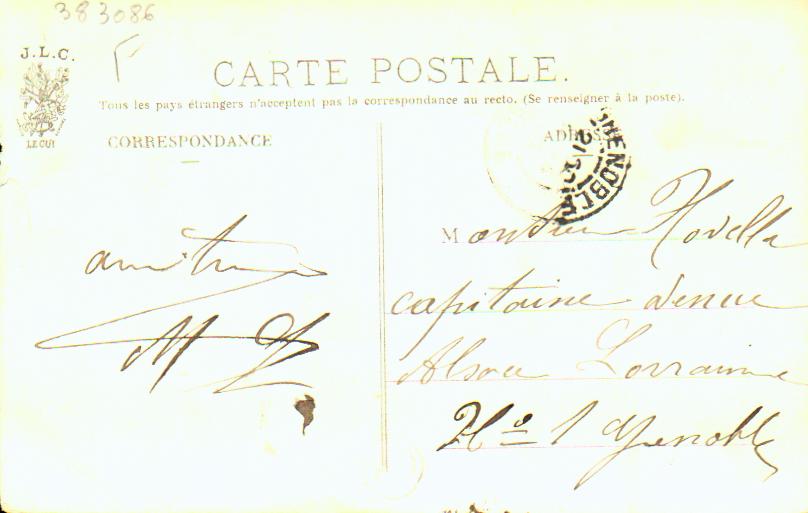 383086
J.L.C.
CARTE POSTALE.
Tous les pays étrangers n'acceptent pas la correspondance au recto. (Se renseigner à la poste).
LE GUI
CORRESPONDANCE
ADRESSE
GRENOBLE
Monsieur Novella
capitaine
Alsace Lorraine
No 1 Grenoble
amitiés
M